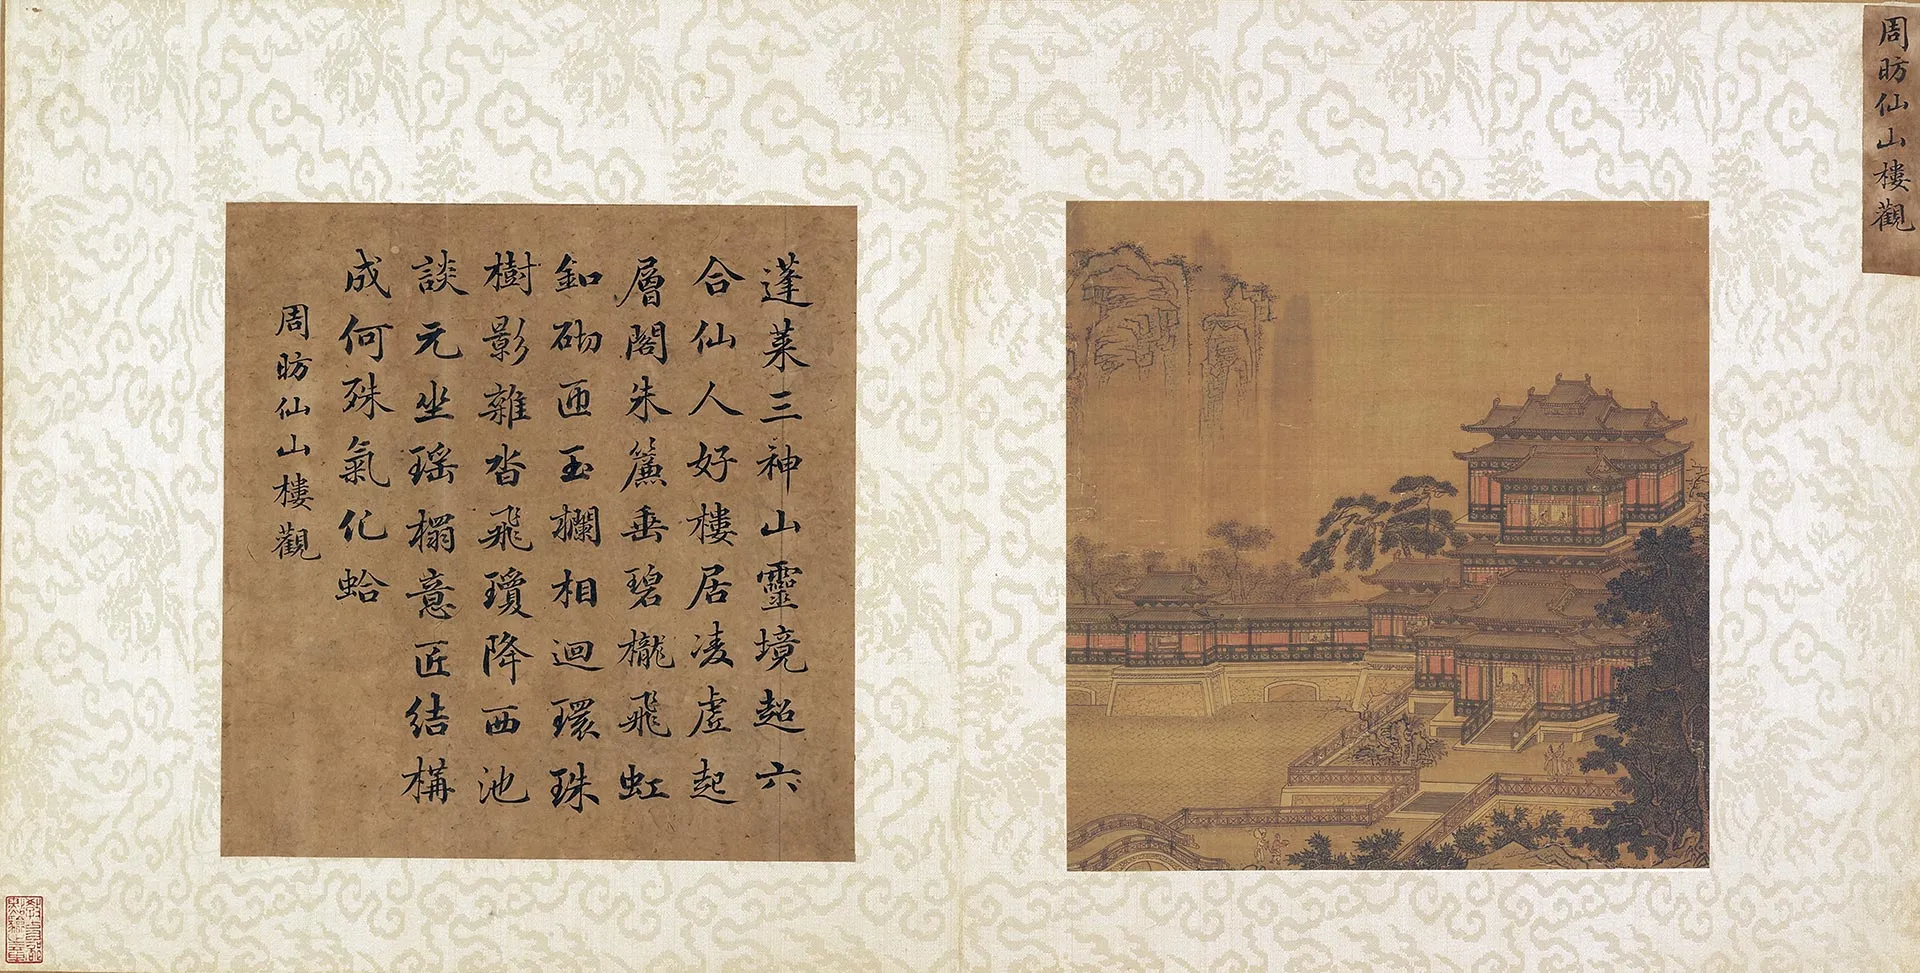 周昉仙山樓觀
蓬萊三神山靈境超六
合仙人好樓居凌虛起
層閣朱簾垂碧櫳飛虹
釦砌匝玉欄相迴環珠
樹影雜沓飛瓊降西池
談元坐瑤榻意匠結構
成何殊氣化蛤
周昉仙山樓觀